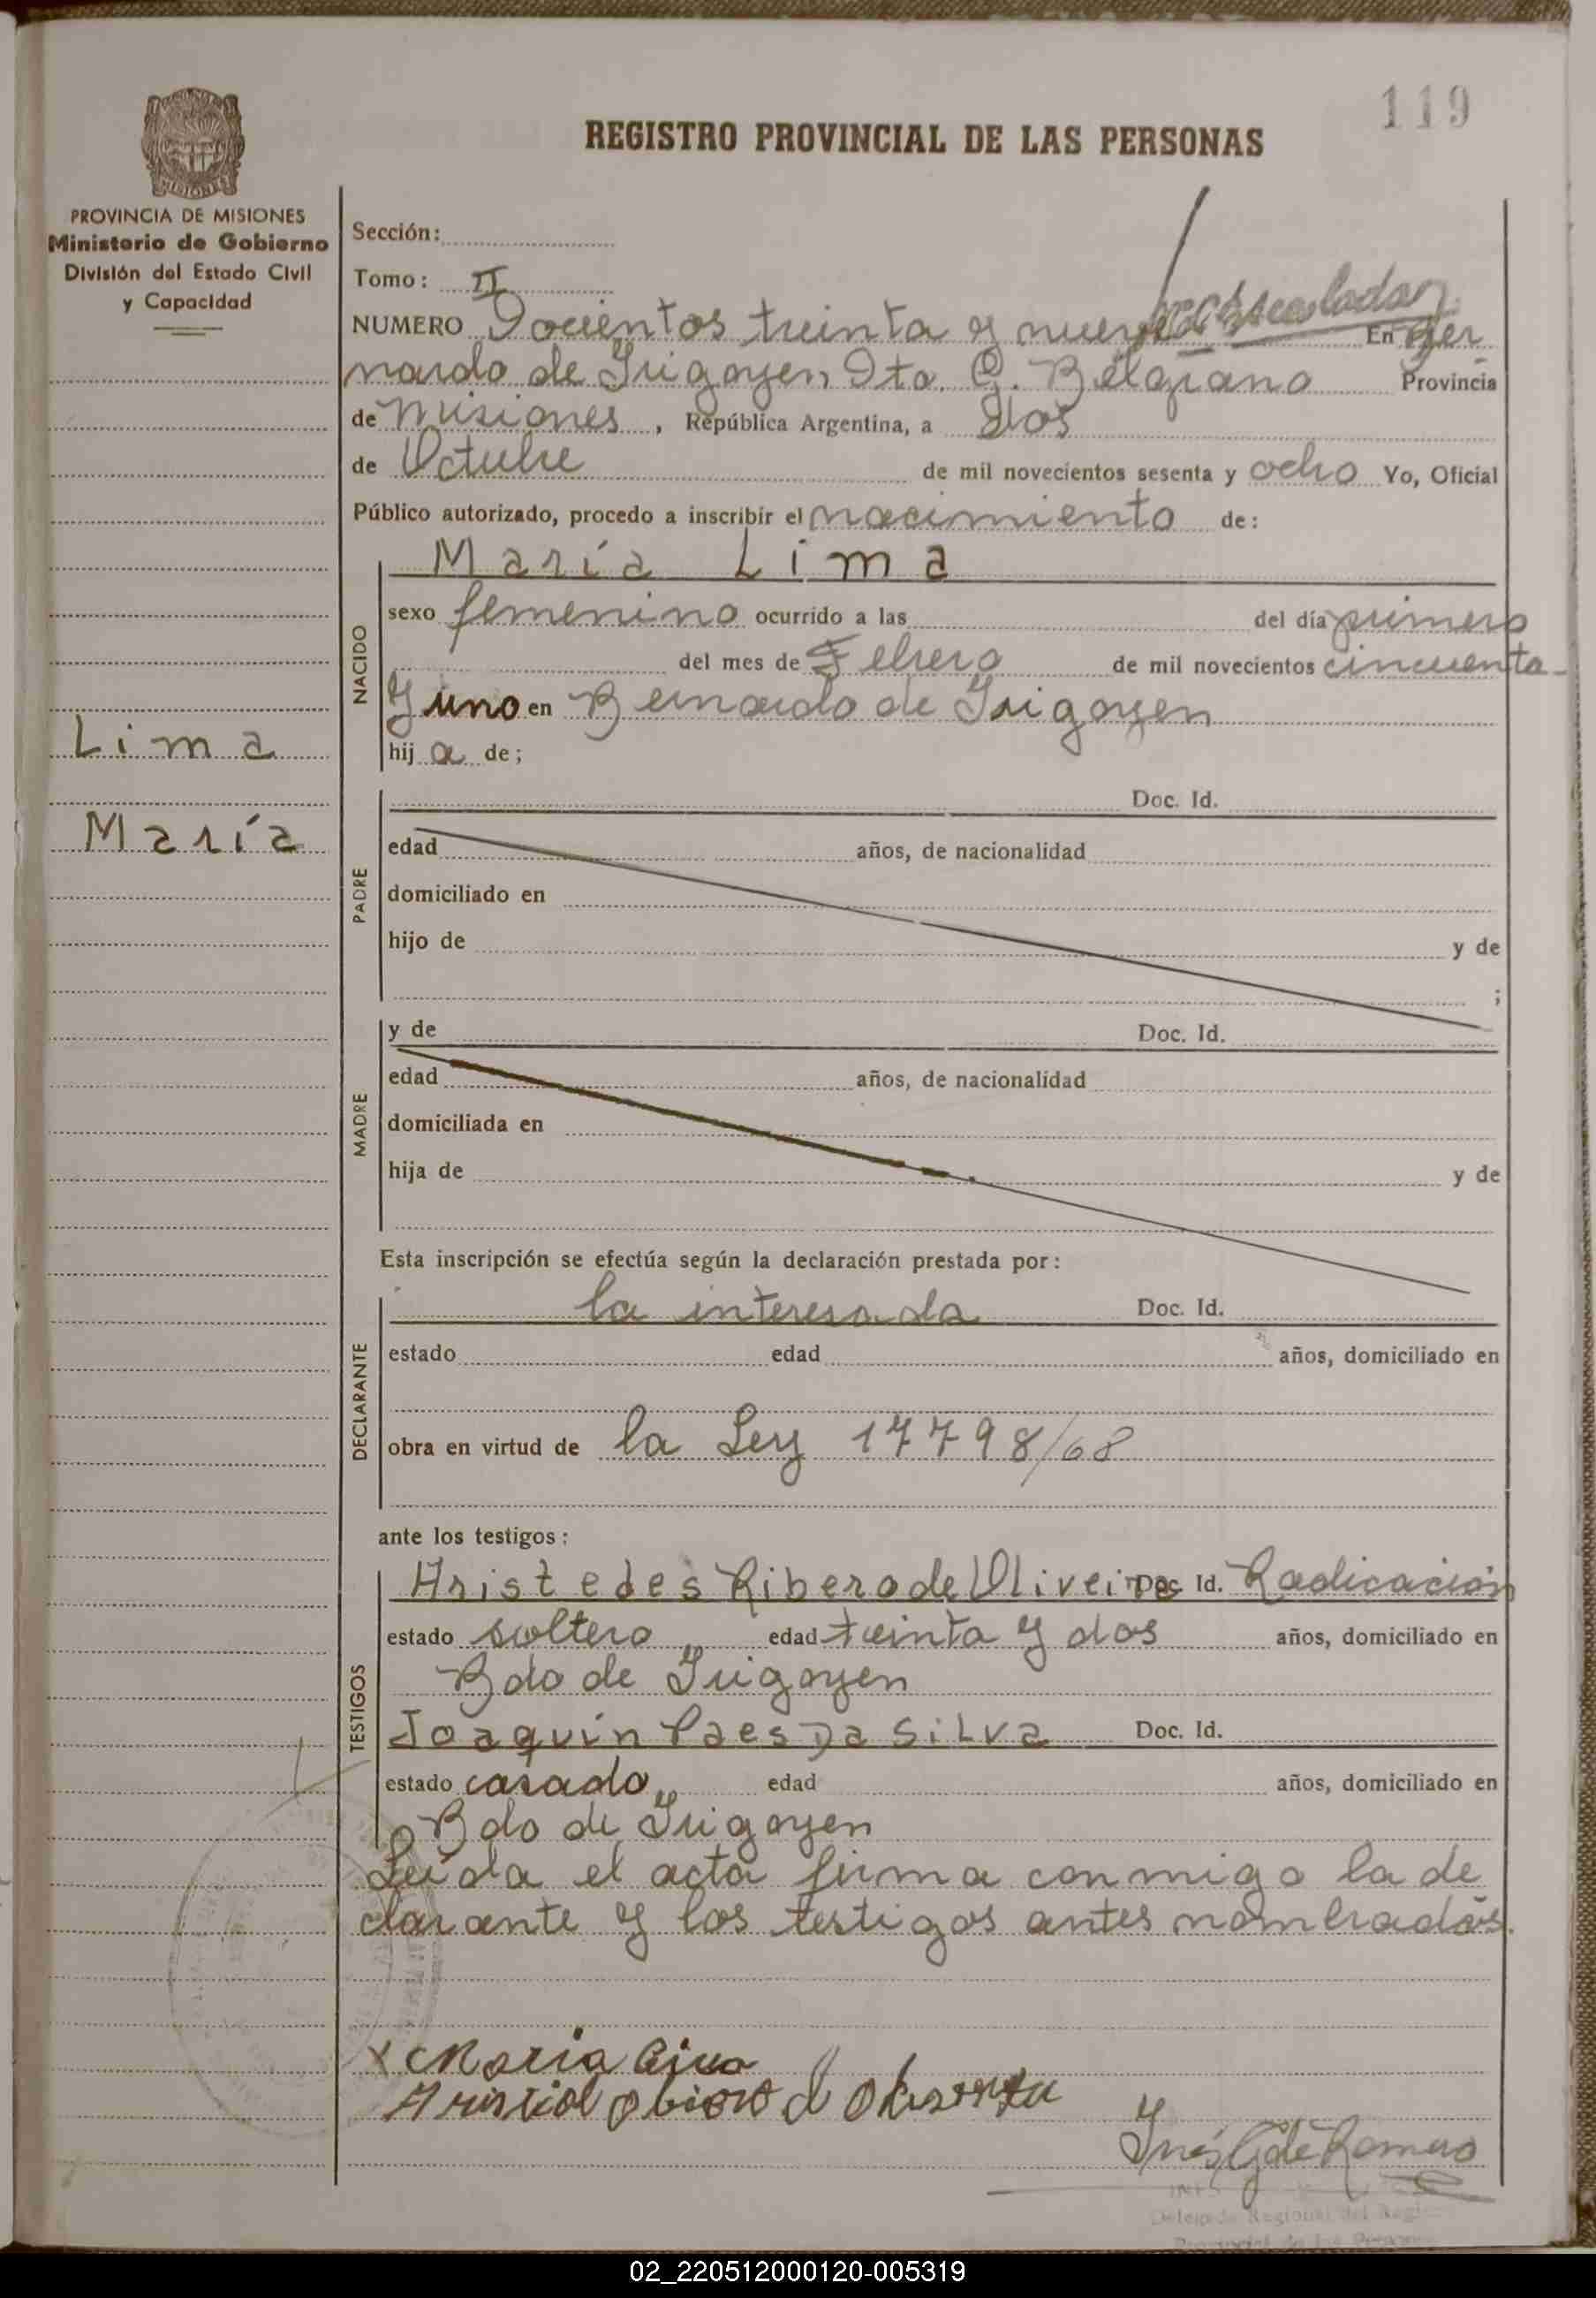 119
REGISTRO PROVINCIAL DE LAS PERSONAS
MISIONES
PROVINCIA DE MISIONES
Ministerio de Gobierno
División del Estado Civil
y Capacidad
Sección:
Tomo: II
NUMERO Docientos treinta y nueve En Ber
nardo de Irigoyen, Dto. G. Belgrano Provincia
de Misiones, República Argentina, a Dos
de Octubre de mil novecientos sesenta y ocho Yo, Oficial
Público autorizado, procedo a inscribir el nacimiento de:
María Lima
NACIDO
sexo femenino ocurrido a las del día primero
del mes de Febrero de mil novecientos cincuenta-
y uno en Bernardo de Irigoyen
hij a de;
Lima
María
PADRE
Doc. Id.
edad años, de nacionalidad
domiciliado en
hijo de y de
;
MADRE
y de Doc. Id.
edad años, de nacionalidad
domiciliada en
hija de y de
Esta inscripción se efectúa según la declaración prestada por:
DECLARANTE
la interesada Doc. Id.
estado edad años, domiciliado en
obra en virtud de la Ley 17798/68
ante los testigos:
TESTIGOS
Aristedes Ribero de Oliveira Doc. Id. Radicación
estado soltero edad treinta y dos años, domiciliado en
Bdo de Irigoyen
Joaquín Paes Da Silva Doc. Id.
estado casado edad años, domiciliado en
Bdo de Irigoyen
Leída el acta firma conmigo la de
clarante y los testigos antes nombrados.
x Maria Lima
Inés G de Romero
INES
Delegada Regional del Regi
Provincial de las Personas
02_220512000120-005319